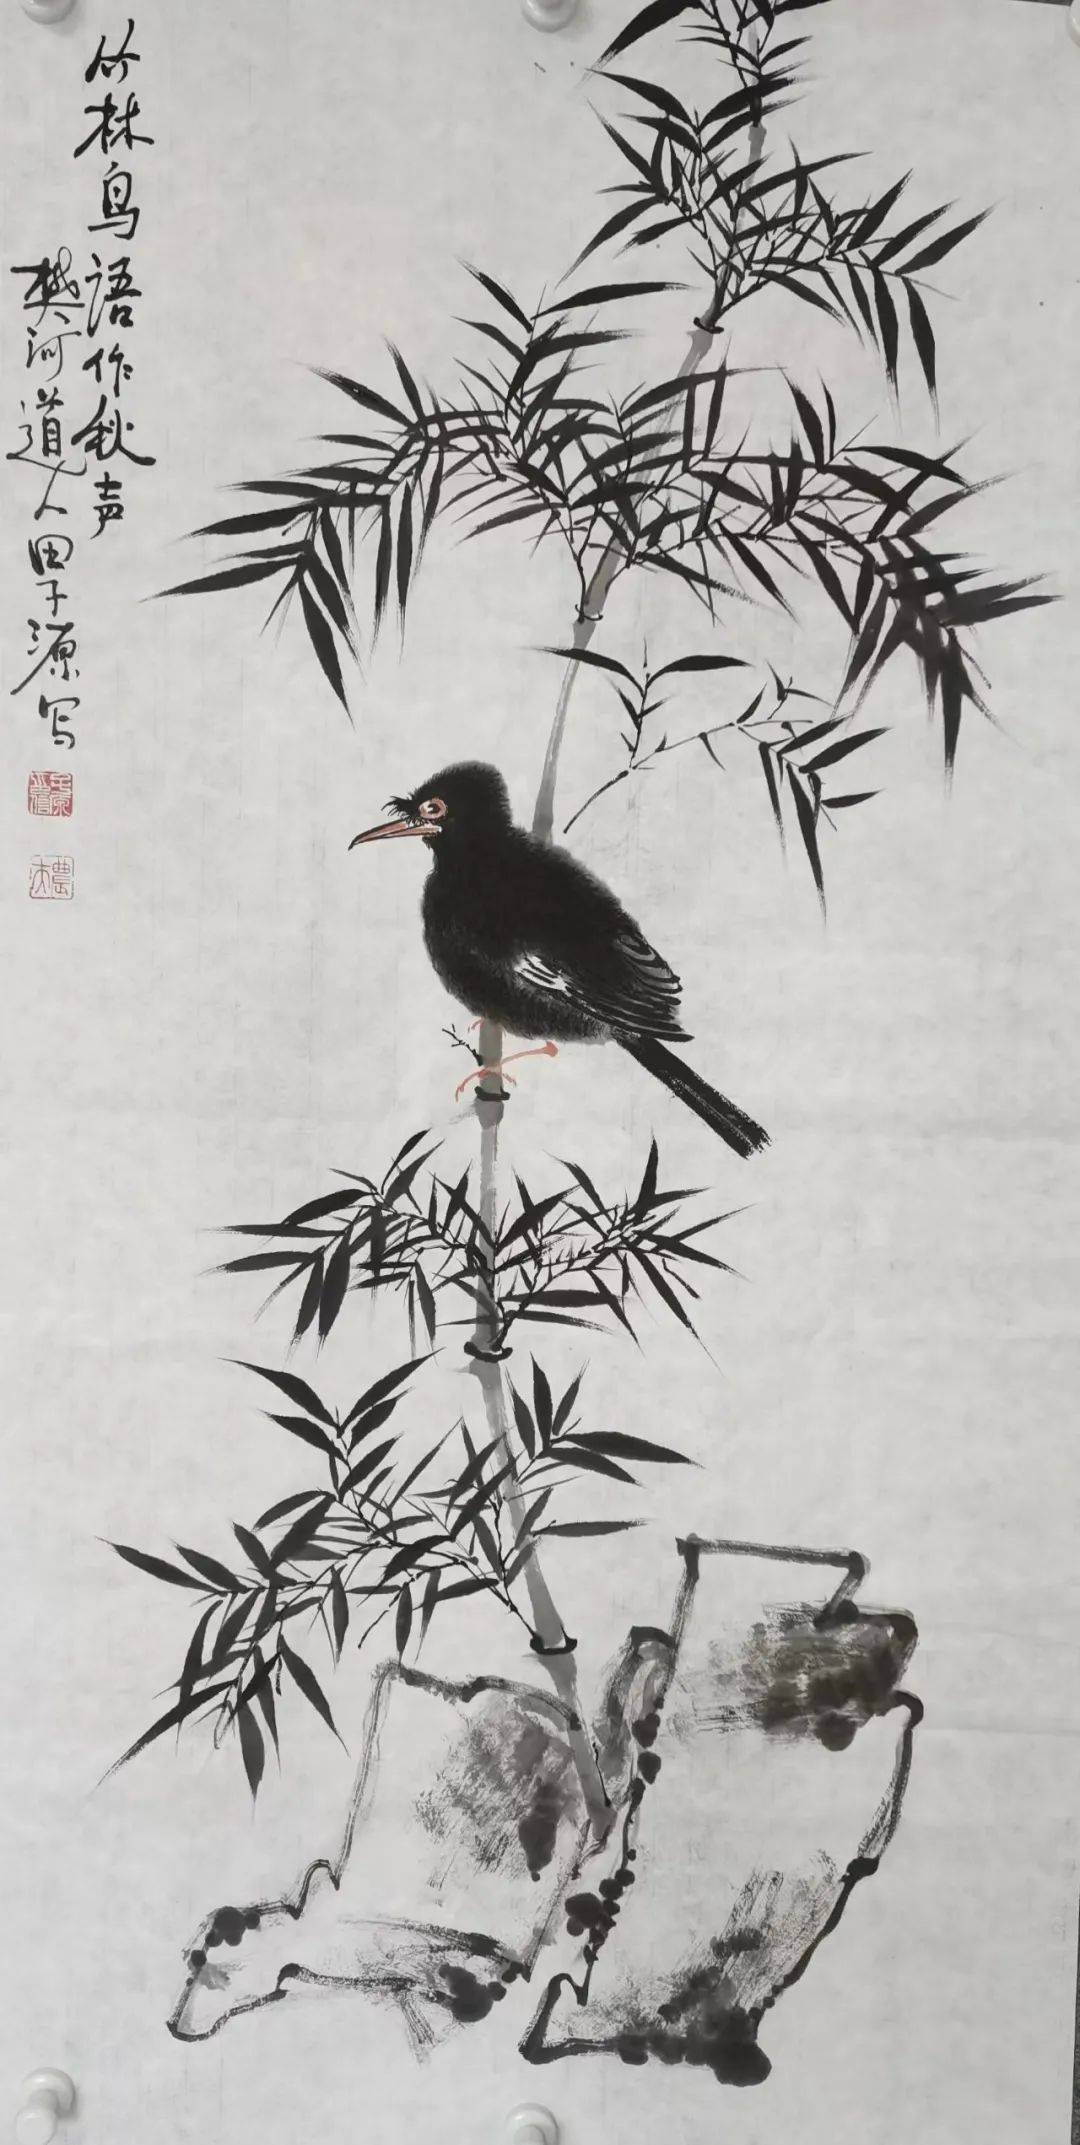 竹林鸟语作秋声
樊河道人田子源写